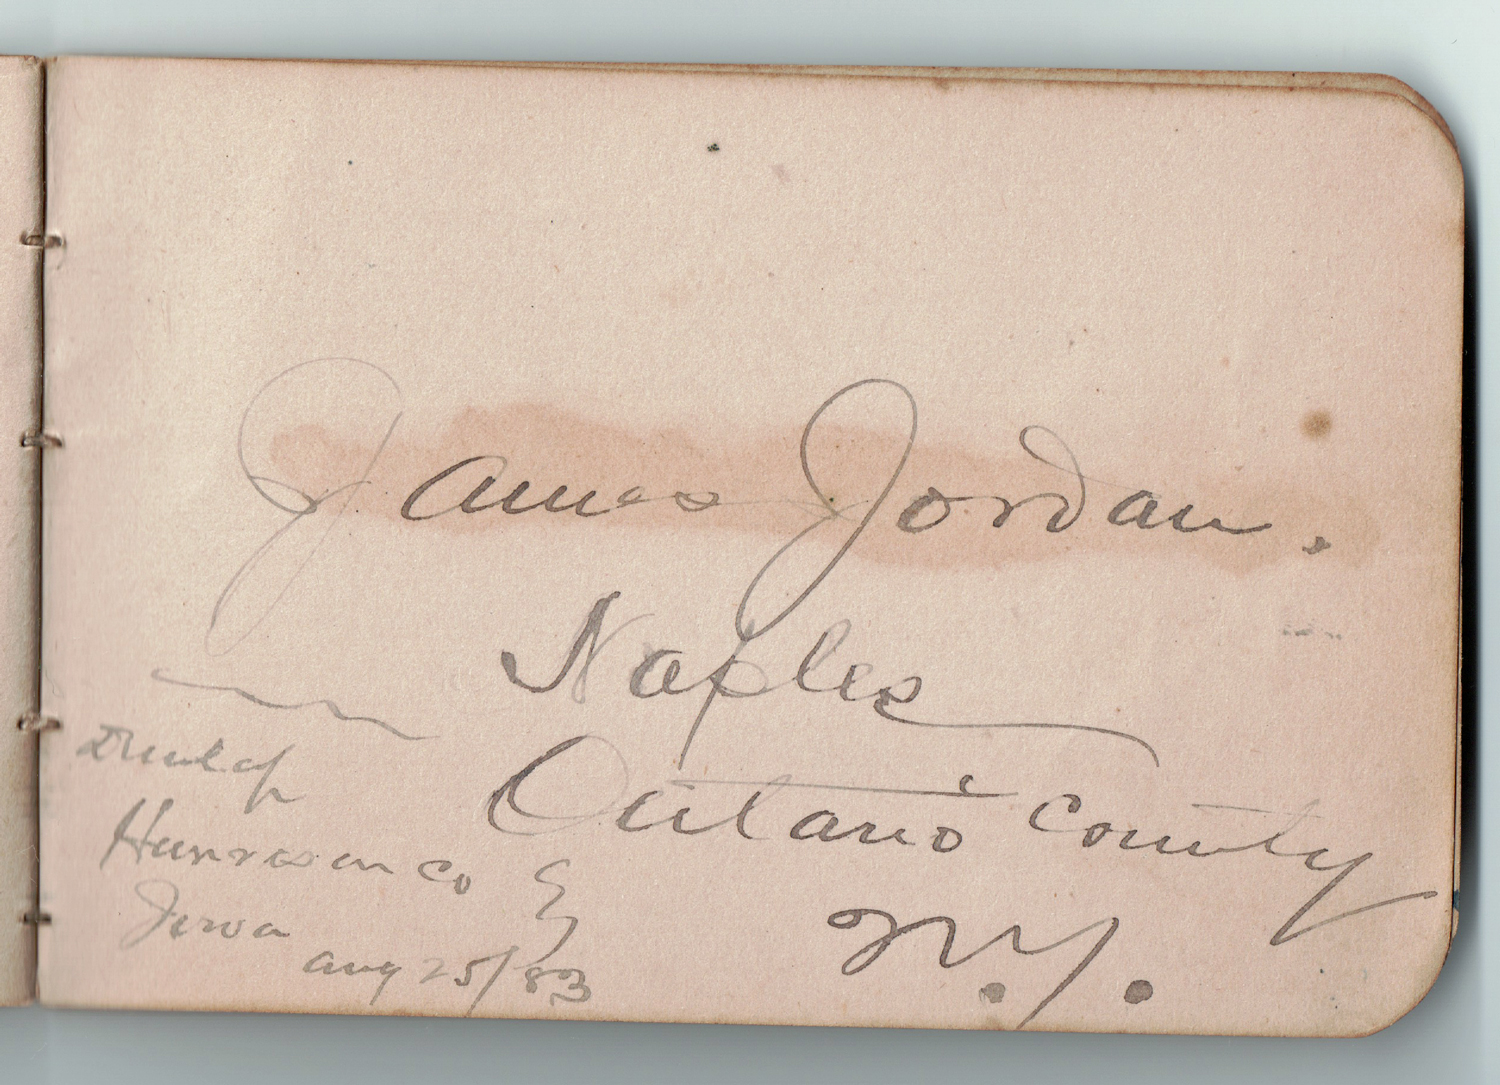 James Jordan.
Naples
Ontario County
N.Y.
Dunlap
Harrison Co
Iowa
Aug 25/83